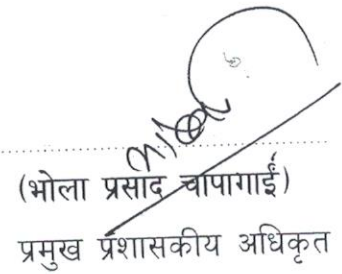 (भोला प्रसाद चापागाईं)
प्रमुख प्रशासकीय अधिकृत